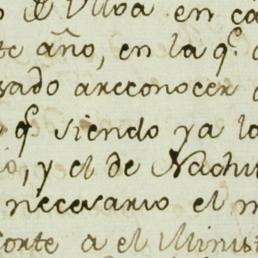 o de Vlloa en ca
te año, en la q.e
sado areconocer
q.e siendo ya la
io, y el de Nachi
necesario el m
Corte a el Minist